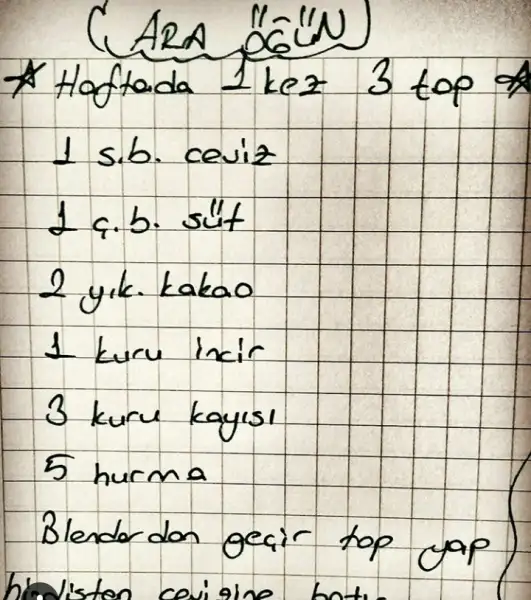 (ARA ÖĞÜN)
☆ Haftada 1 kez 3 top ☆
1 s.b. ceviz
1 ç.b. süt
2 y.k. kakao
1 kuru incir
3 kuru kayısı
5 hurma
Blenderdan geçir top yap
hindistan cevizine batır